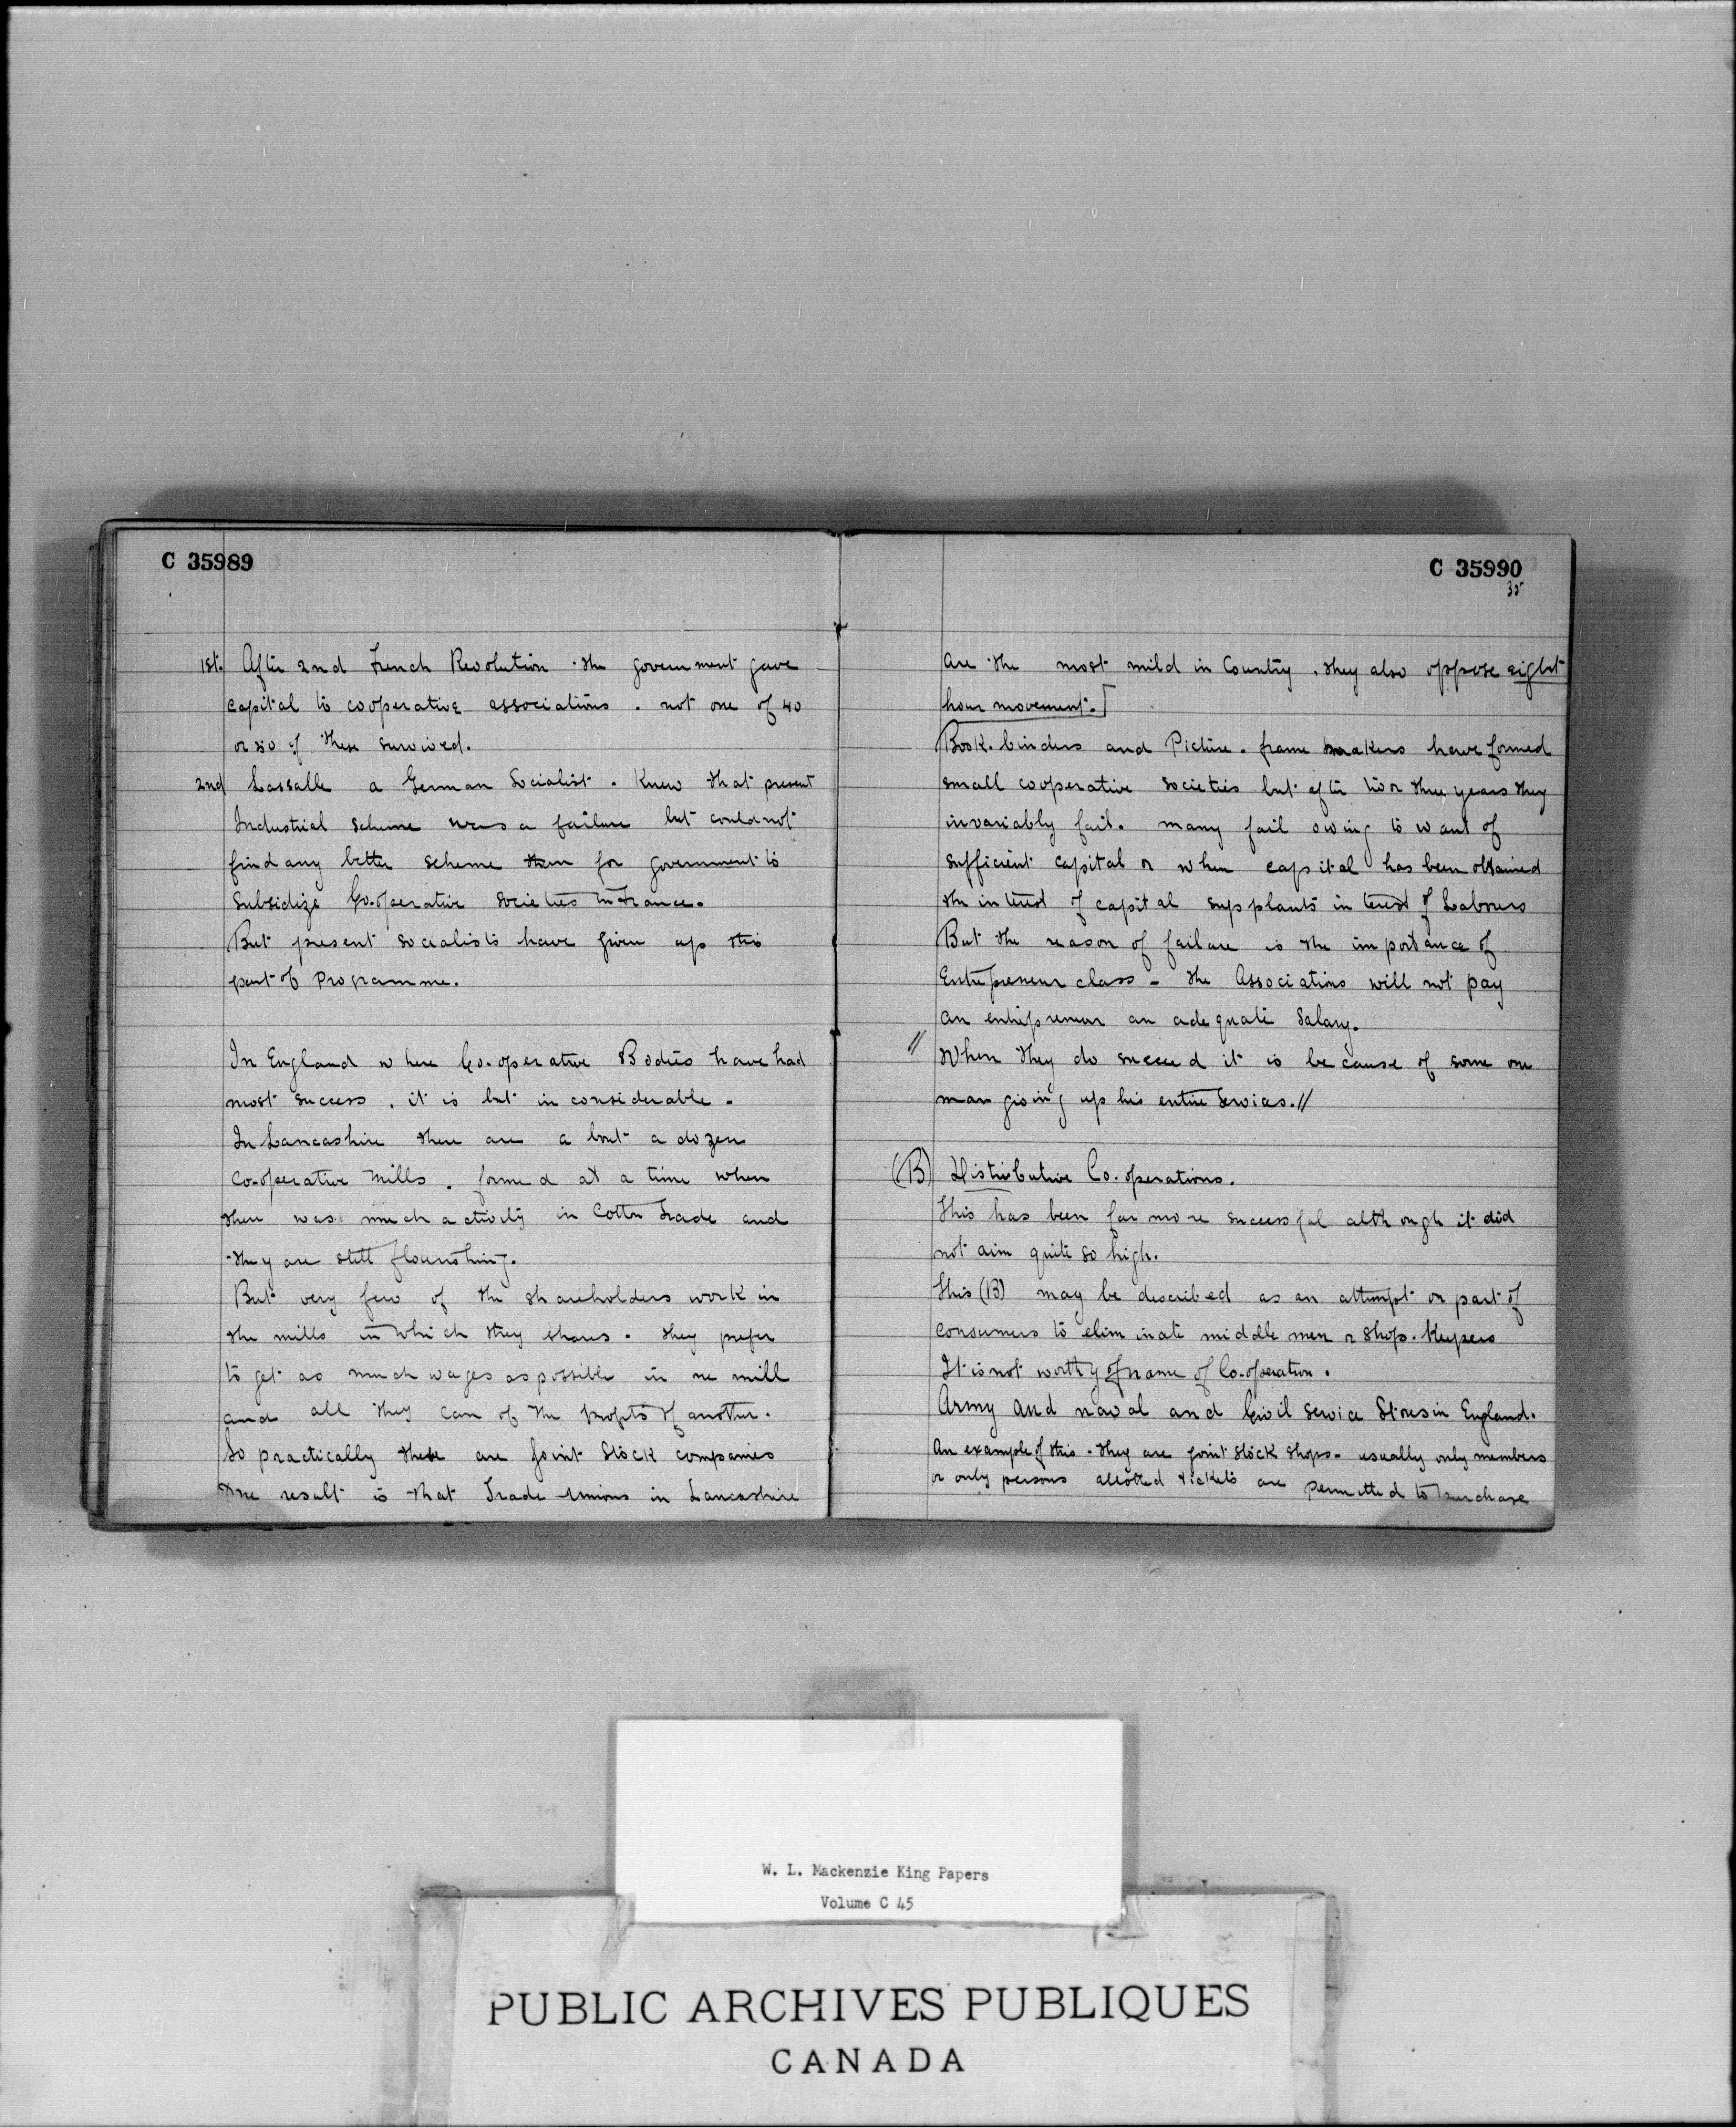 C 35989
1st. After 2nd French Revolution the government gave
capital to cooperative associations. not one of 40
or 50 of these survived.
2nd Lassalle a German Socialist. Knew that present
Industrial scheme was a failure but could not
find any better scheme than for government to
subsidize Co-operative societies in France.
But present socialists have given up this
part of Programme.
In England where Co-operative Bodies have had
most success, it is but inconsiderable.
In Lancashire there are about a dozen
co-operative mills. formed at a time when
there was much activity in Cotton Trade and
they are still flourishing.
But very few of the shareholders work in
the mills in which they share. They prefer
to get as much wages as possible in one mill
and all they can of the profits of another.
So practically these are Joint Stock companies
One result is that Trade Unions in Lancashire
C 35990
35
are the most mild in Country, they also oppose eight
hour movement.]
Book-binders and Picture-frame makers have formed
small cooperative societies but after two or three years they
invariably fail. many fail owing to want of
sufficient capital or when capital has been obtained
the interest of capital supplants interest of Labourers
But the reason of failure is the importance of
Entrepreneur class - the Associations will not pay
an entrepreneur an adequate salary.
// When they do succeed it is because of some one
man giving up his entire services.//
(B) Distributive Co.operations.
This has been far more successful although it did
not aim quite so high.
This (B) may be described as an attempt on part of
consumers to eliminate middle men or shop-keepers
It is not worthy of name of Co-operation.
Army and naval and Civil Service Stores in England.
An example of this. They are joint stock shops - usually only members
or only persons allotted tickets are permitted to purchase
W. L. Mackenzie King Papers
Volume C 45
PUBLIC ARCHIVES PUBLIQUES
CANADA